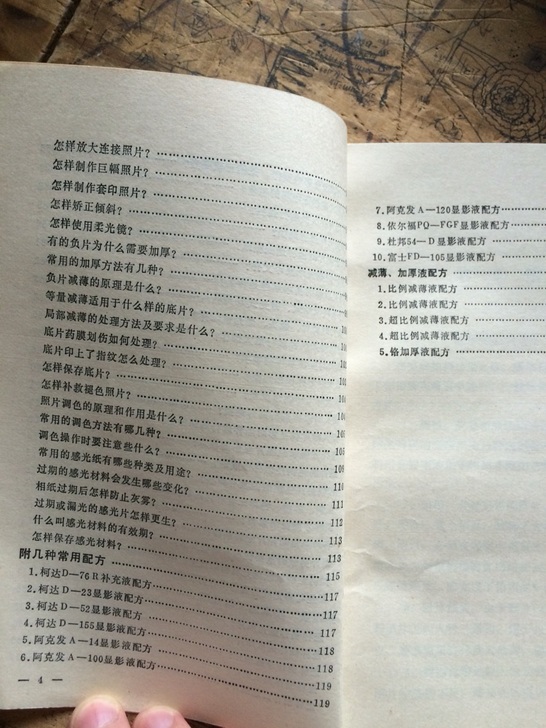 怎样放大连接照片?
怎样制作巨幅照片?
怎样制作套印照片?
怎样矫正倾斜?
怎样使用柔光镜?
有的负片为什么需要加厚?
常用的加厚方法有几种?
负片减薄的原理是什么?
等量减薄适用于什么样的底片?
局部减薄的处理方法及要求是什么?
底片药膜划伤如何处理?
底片印上了指纹怎么处理?
怎样保存底片?
怎样补救褪色照片?
照片调色的原理和作用是什么?
常用的调色方法有哪几种?
调色操作时要注意些什么?
常用的感光纸有哪些种类及用途? 109
过期的感光材料会发生哪些变化? 110
相纸过期后怎样防止灰雾? 111
过期或漏光的感光片怎样更生? 112
什么叫感光材料的有效期? 113
怎样保存感光材料? 113
附几种常用配方 115
1.柯达D—76R补充液配方 117
2.柯达D—23显影液配方 117
3.柯达D—52显影液配方 117
4.柯达D—155显影液配方 118
5.阿克发A—14显影液配方 118
6.阿克发A—100显影液配方 119
119
— 4 —
7.阿克发A—120显影液配方
8.依尔福PQ—FGF显影液配方
9.杜邦54—D显影液配方
10.富士FD—105显影液配方
减薄、加厚液配方
1.比例减薄液配方
2.比例减薄液配方
3.超比例减薄液配方
4.超比例减薄液配方
5.铬加厚液配方